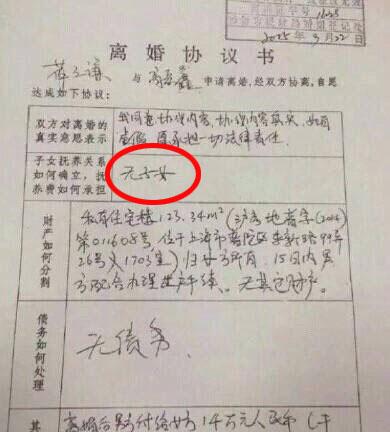 2015年3月22日
离婚协议书
与 申请离婚,经双方协商,自愿
达成如下协议:
双方对离婚的
真实意思表示
我同意协议内容,协议内容真实,如有
虚假 愿承担一切法律责任.
子女抚养关系
如何确立,抚
养费如何承担
无子女
财产如何分割
私有住宅楼123.34m²(沪房地普字(2014)
第011608号,位于上海市普陀区 新路99弄
26号 1703室)归女方所有,15日内男
方配合办理过户手续。无其它财产。
债务如何处理
无债务.
其
离婚后男方付给女方14万元人民币(于